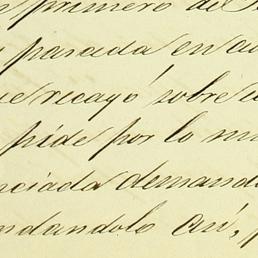 n primero de
parada en au
ue recayó sobre
pide por lo m
nciada demand
ndandolo así,